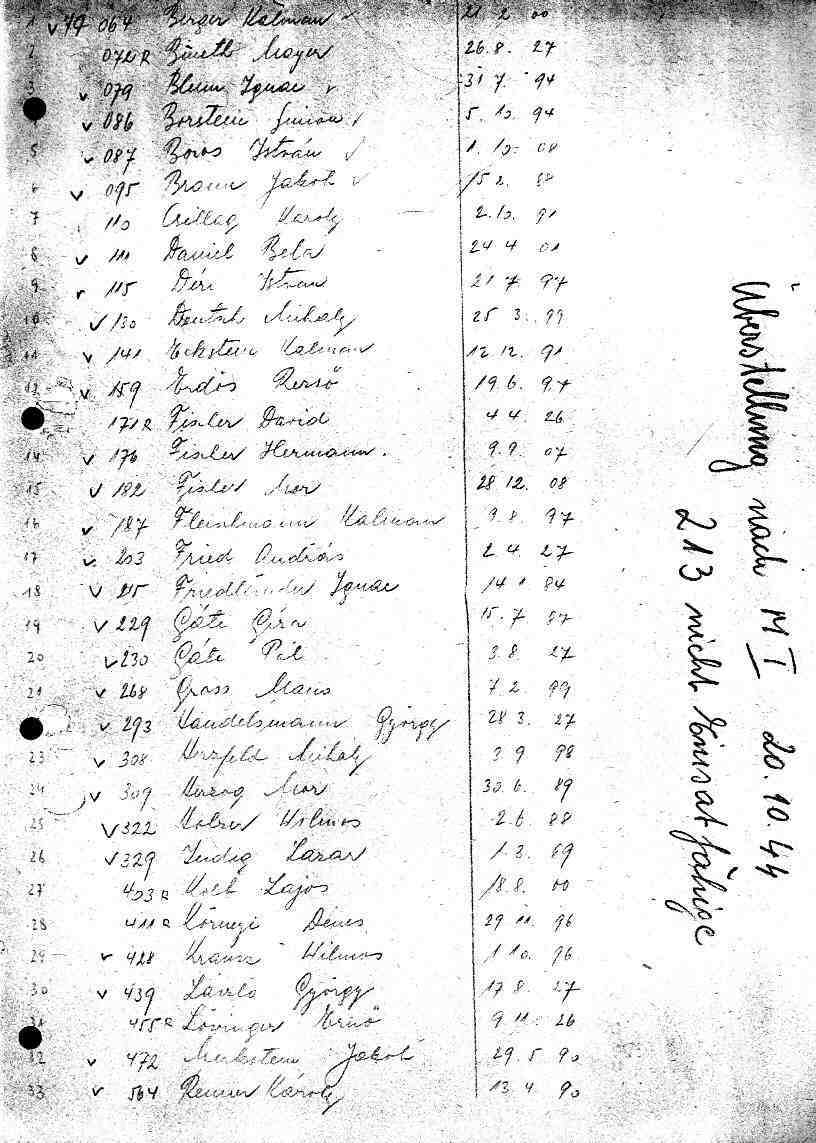 1 v 79 064 Berger Kálman v 21 2 00
2 072 R Bineth Mayer 26.8. 27
3 v 079 Blum Ignac v 31 7. 94
4 v 086 Borstein Simon v 5. 10. 94
5 v 087 Boros István v 1. 10. 08
6 v 095 Braun Jakob v 15 2.
7 110 Csillag Karoly 2.10. 91
8 v 111 Daniel Bela 24 4 01
9 v 115 Déri Istvan 21 7 97
10 v 130 Deutsch Mihaly 25 3. 99
11 v 141 Eckstein Kalman 12.12. 91
12 v 159 Erdös Rezsö 19 6. 97
171 R Fisller David 4 4. 26
14 v 176 Fisller Hermann. 9.9. 07
15 v 182 Fisller Mor 28 12. 08
16 v 187 Fleischmann Kalmann 9 8. 97
17 v 203 Fried András 2 4. 27
18 v 215 Friedländer Ignac 14 1 84
19 v 229 Gáti Géza 15. 7 87
20 v 230 Gáti Pál 3.8. 27
21 v 268 Gross Manó 7 2. 99
v 293 Handelsmann György 28 3. 27
23 v 308 Herzfeld Mihaly 3 9 98
24 v 309 Herzog Mor 30.6. 89
25 v 322 Holzer Vilmos 2 6. 88
26 v 329 Indig Lazar 1 3. 89
27 403 R Lajos 18.8. 00
28 411 R Környei Dénes 29 11. 96
29 v 428 Krausz Vilmos 1 10. 96
30 v 439 László György 17 8. 27
31 455 R Lövinger Ernö 9 11. 26
32 v 472 Jakob 29. 5 90
33 v 564 Renner Károly 13 4 90
Überstellung nach M I 20.10.44
213 nicht Einsatzfähige